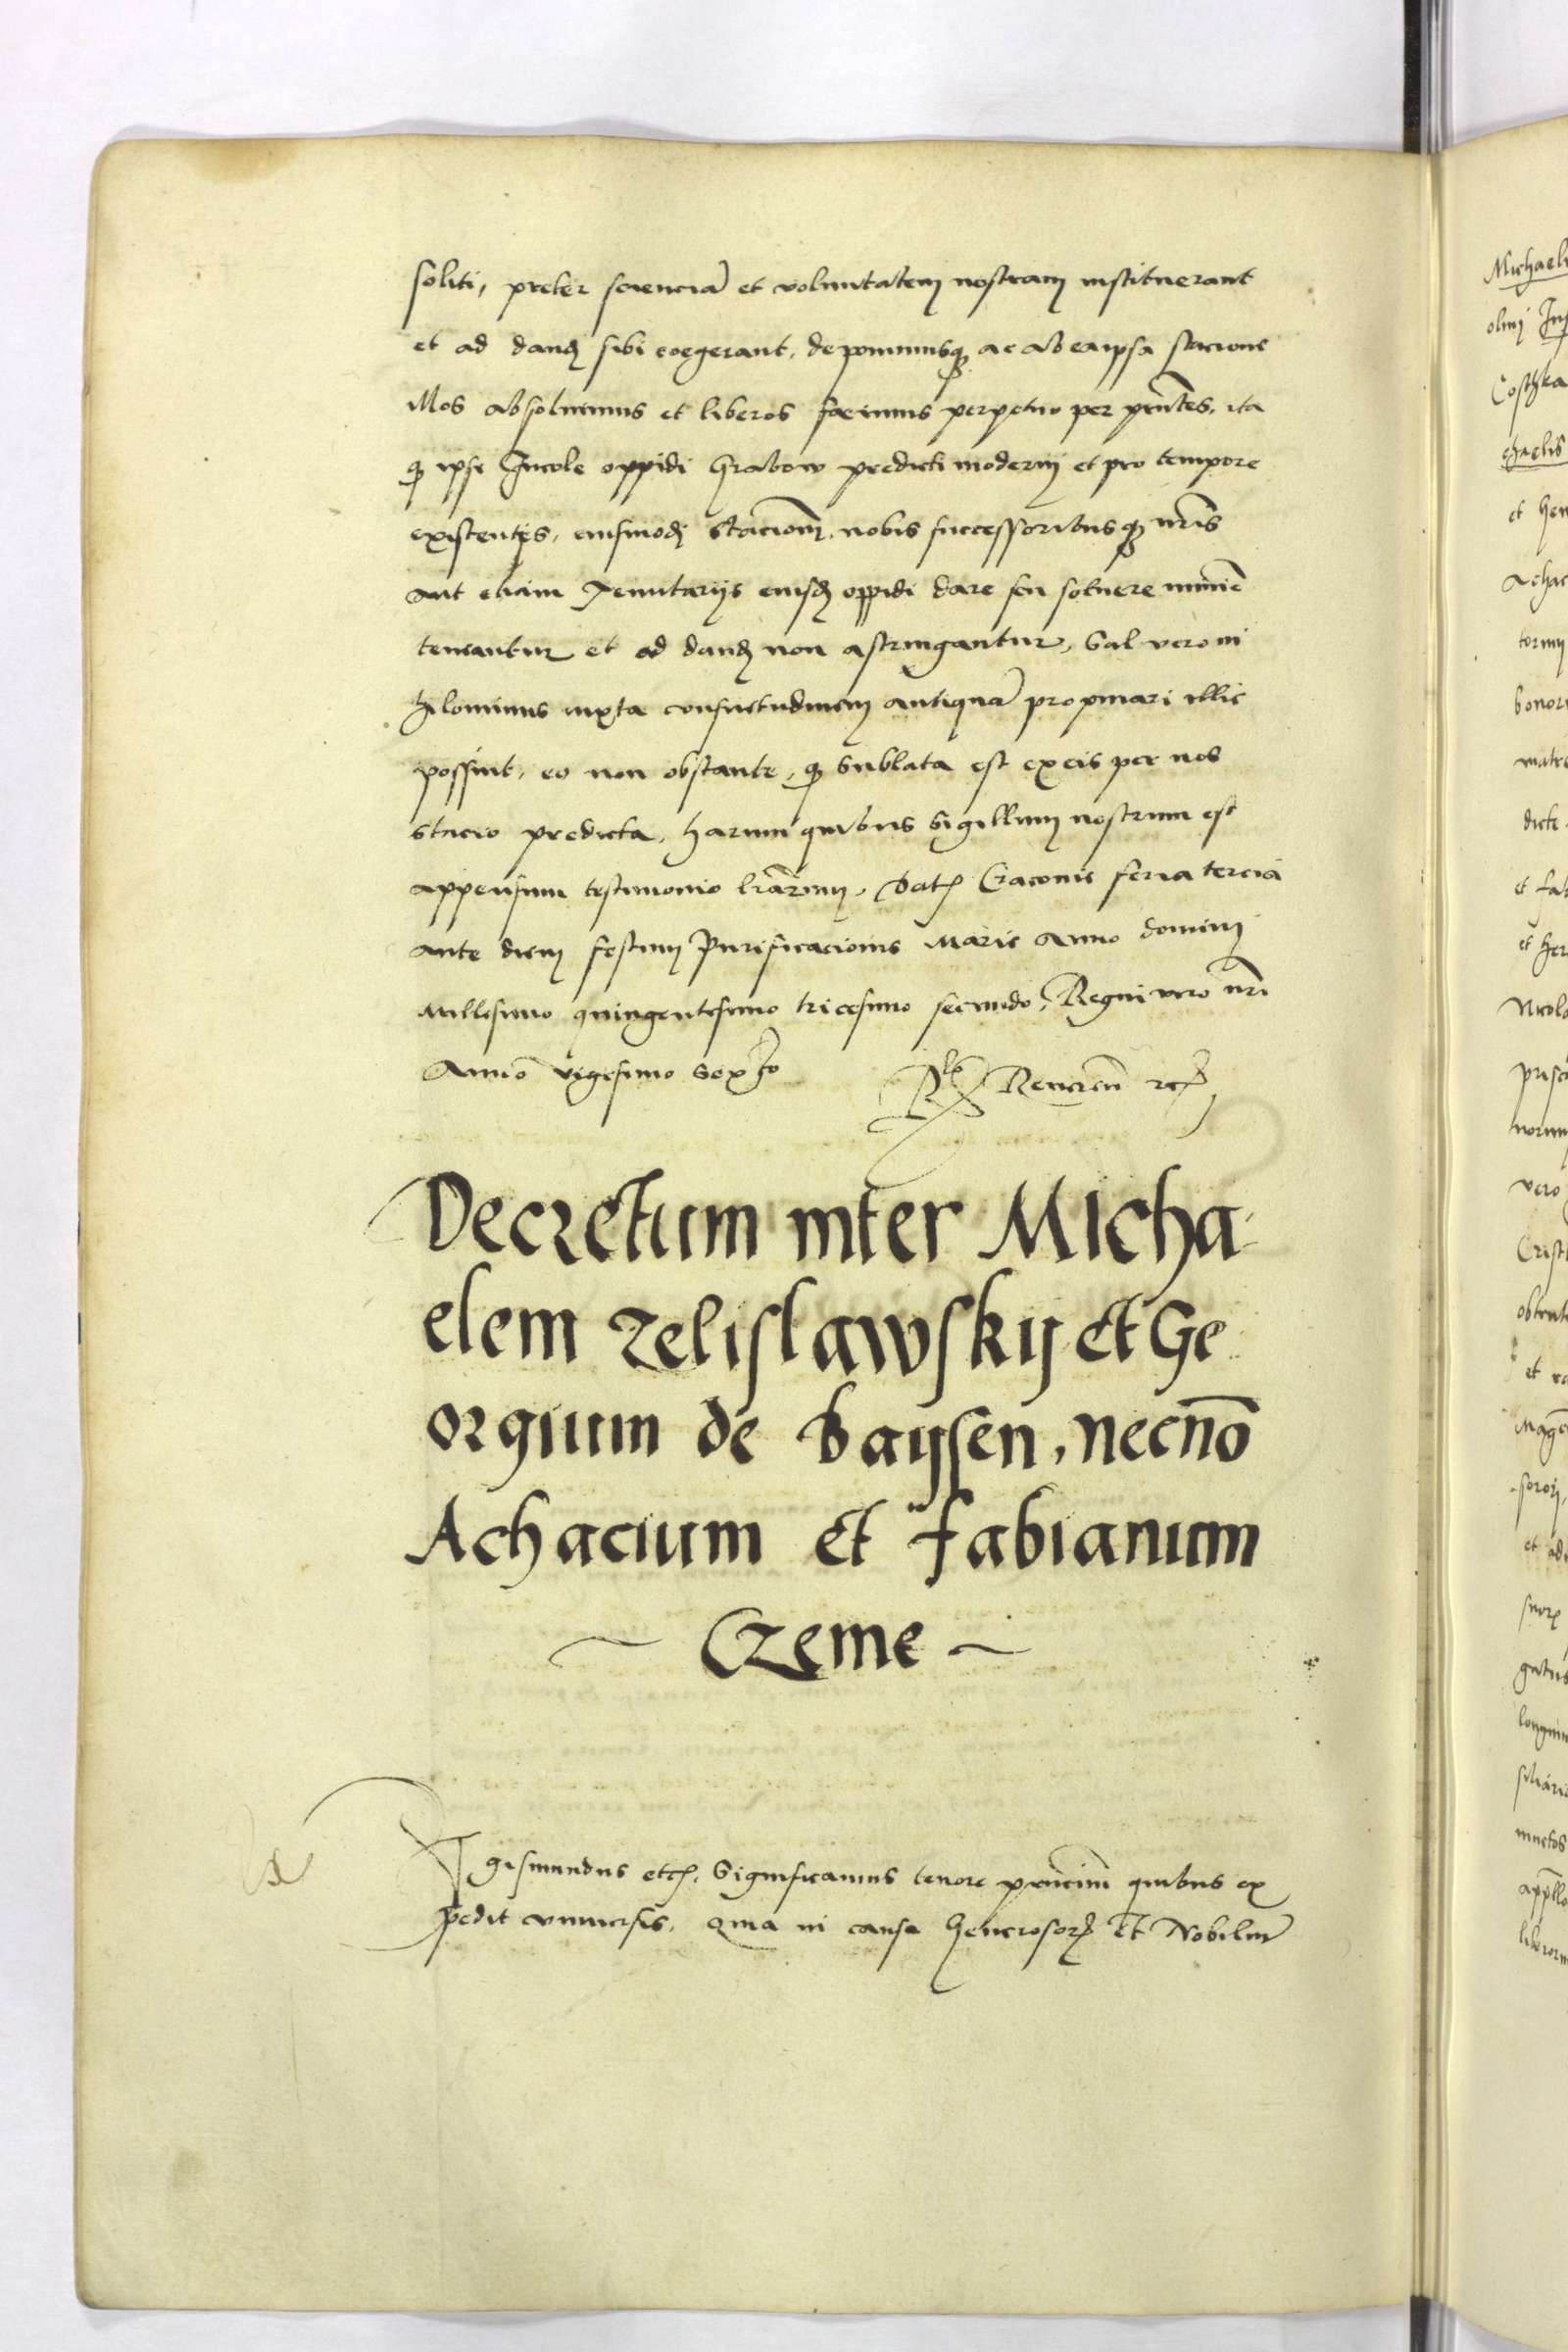 soliti, preter scienciã et voluntatem nostram instituerant
et ad dand sibi coegerant, deponimusq ac ab ea ipsa stacione
illos absoluimus et liberos facimus perpetuo per pñtes, ita
q ipse Incole oppidi Grabow predicti moderni et pro tempore
existentes, eiusmodi stacionẽ nobis successoribusq nris
aut etiam Tenutarijs eiusd oppidi dare seu soluere minime
teneantur et ad dand non astringantur, Sal vero ni
hilominus iuxta consuetudinem antiquã propinari illic
possint, eo non obstante, q sublata est ex eis per nos
stacio predicta, harum quibus Sigillum nostrum est
appensum testimonio lrarum, Dat Cracouie feria tercia
ante diem festum Purificacionis Marie Anno domini
Millesimo quingentesimo tricesimo secundo, Regni vero nri
Anno vigesimo sexto Rlo Reueren etc
Decretum inter Micha
elem Zelislawskij et Ge
orgium de Baijsen, necnõ
Achacium et Fabianum
Czeme
Sigismundus etc, Significamus tenore pñcium quibus ex
pedit vniuersis, Quia in causa Generosor et Nobiliũ
Michael
olim
Costka
chaelis
et
Achac
bonor
matre
dicte
et fab
et her
Nicola
vero
Cristi
obtent
et
et
longin